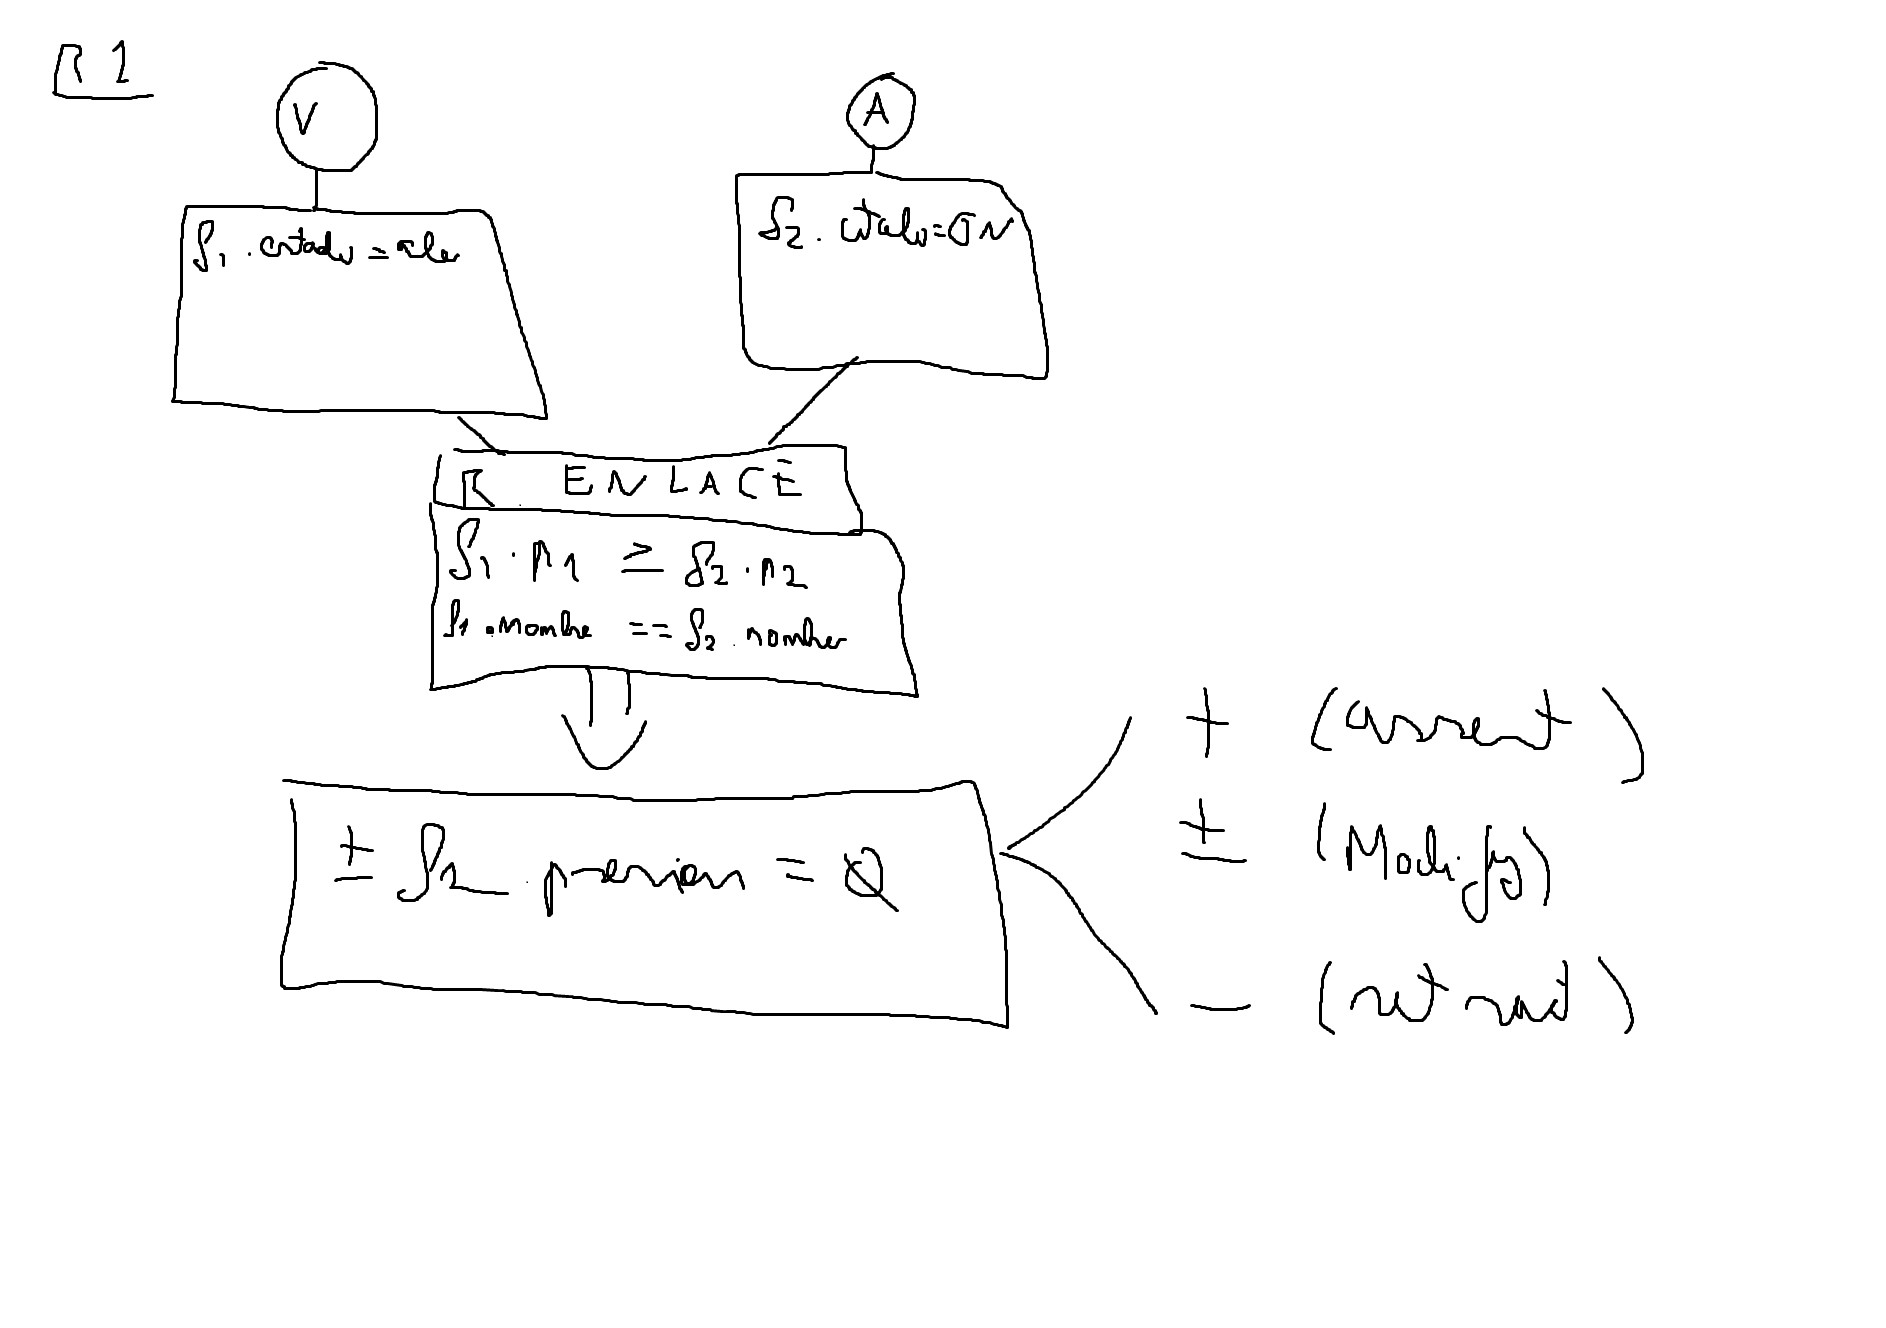 R1
V
A
f1.estado = abe
f2.estado = ON
R ENLACE
f1.p1 ≥ f2.p2
f1.nombre == f2.nombre
± f2.presion = Q
+ (assert)
± (Modify)
- (retract)